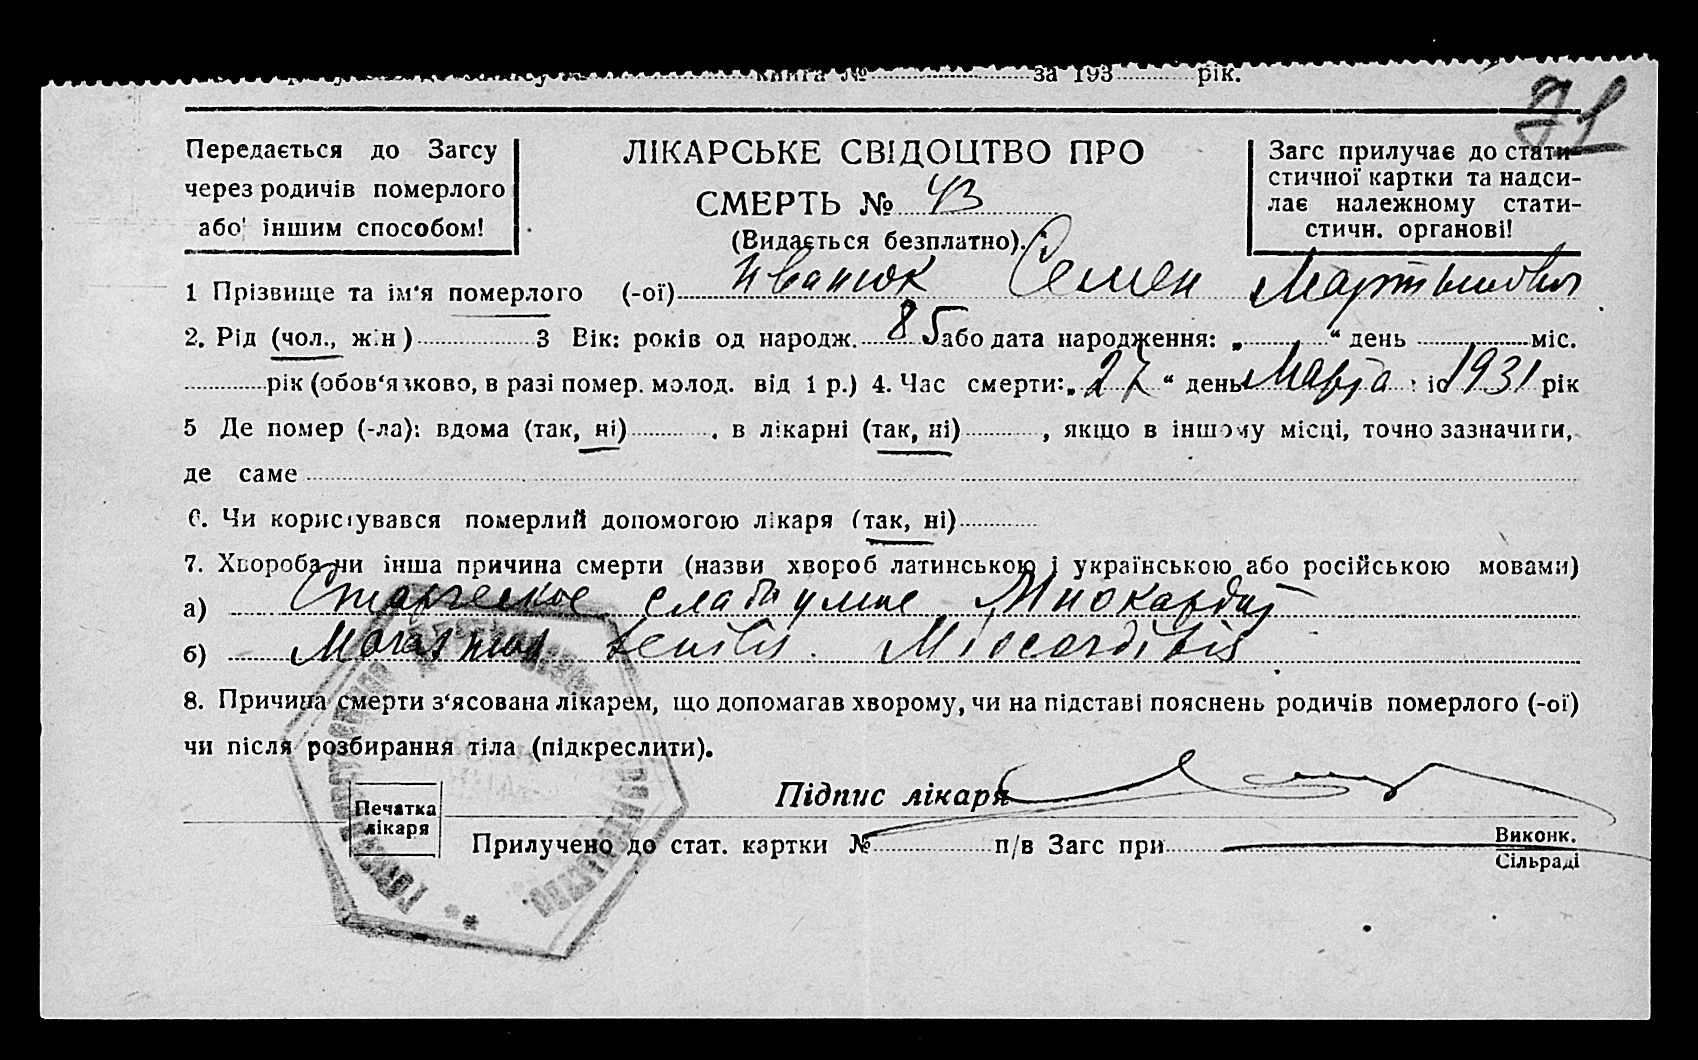 книга № за 193 рік.
71
Передається до Загсу
через родичів померлого
або іншим способом!
ЛІКАРСЬКЕ СВІДОЦТВО ПРО
СМЕРТЬ № 43
(Видається безплатно).
Загс прилучає до стати-
стичної картки та надси-
лає належному стати-
стичн. органові!
1 Прізвище та ім'я померлого (-ої) Иванюк Семен Мартынович
2. Рід (чол., жін) 3 Вік: років од народж. 85 або дата народження: „ “ день міс.
рік (обов'язково, в разі помер. молод. від 1 р.) 4. Час смерти: „27“ день Марта 1931 рік
5 Де помер (-ла): вдома (так, ні) , в лікарні (так, ні) , якщо в іншому місці, точно зазначити,
де саме
6. Чи користувався померлий допомогою лікаря (так, ні)
7. Хвороба чи інша причина смерти (назви хвороб латинською і українською або російською мовами)
а) Старческое слабоумие Миокардит
б) Marasmus senilis. Miocarditis
8. Причина смерти з'ясована лікарем, що допомагав хворому, чи на підставі пояснень родичів померлого (-ої)
чи після розбирання тіла (підкреслити).
Підпис лікаря
Печатка
лікаря
Прилучено до стат. картки № п/в Загс при
Виконк.
Сільраді